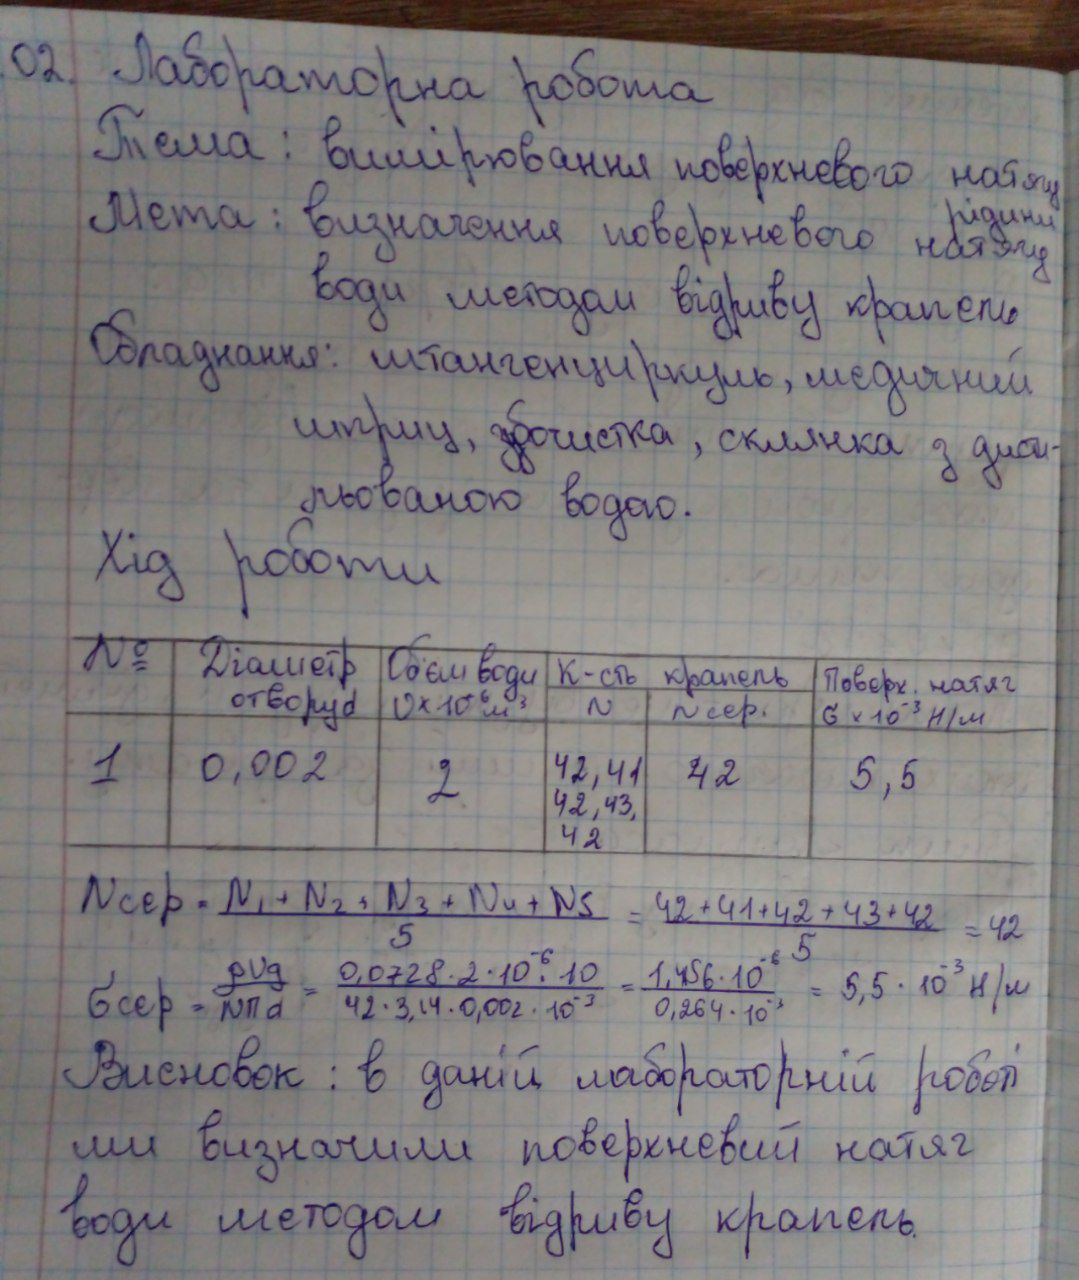 02. Лабораторна робота
Тема: вимірювання поверхневого натягу
рідини
Мета: визначення поверхневого натягу
води методом відриву крапель
Обладнання: штангенциркуль, медичний
шприц, зубочистка, склянка з дисти-
льованою водою.
Хід роботи
№ Діаметр отвору d Об'єм води V×10⁻⁶м³ К-сть крапель N Nсер. Поверх. натяг σ×10⁻³ Н/м
1 0,002 2 42, 41 42 5,5
42, 43,
42
Nсер = N₁ + N₂ + N₃ + N₄ + N5 / 5 = 42+41+42+43+42 / 5 = 42
σсер = ρVg / NПd = 0,0728·2·10⁻⁶·10 / 42·3,14·0,002·10⁻³ = 1,456·10⁻⁶ / 0,264·10⁻³ = 5,5·10⁻³ Н/м
Висновок: в даній лабораторній роботі
ми визначили поверхневий натяг
води методом відриву крапель.